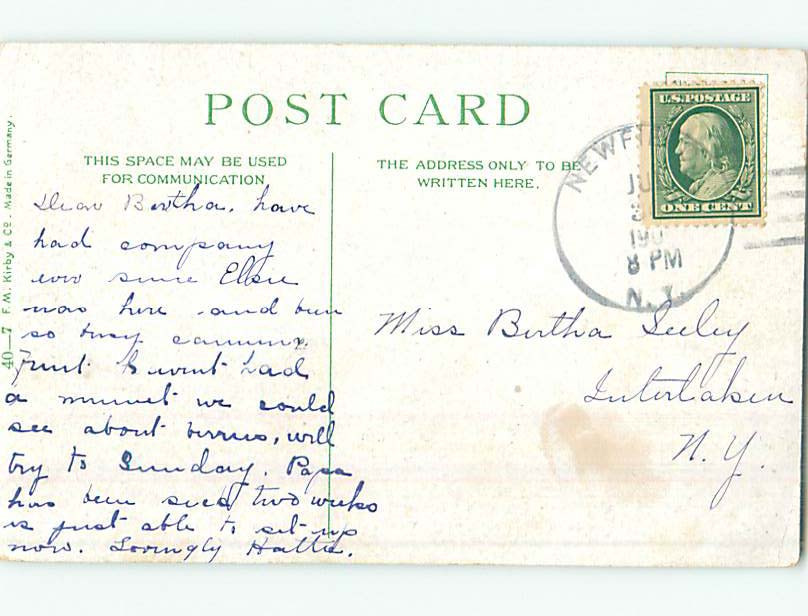 POST CARD
THIS SPACE MAY BE USED
FOR COMMUNICATION
THE ADDRESS ONLY TO BE
WRITTEN HERE.
U.S. POSTAGE
ONE CENT
NEWF
JU
190
8 PM
N. Y.
40-7 F.M. Kirby & Co. Made in Germany.
Dear Bertha, have
had company
ever since Elsie
was here and been
so busy canning
fruit havent had
a minuet we could
see about berries, will
try to Sunday. Papa
has been sick two weeks
is just able to set up
now. Lovingly Hattie.
Miss Bertha Seeley
Interlaken
N. Y.